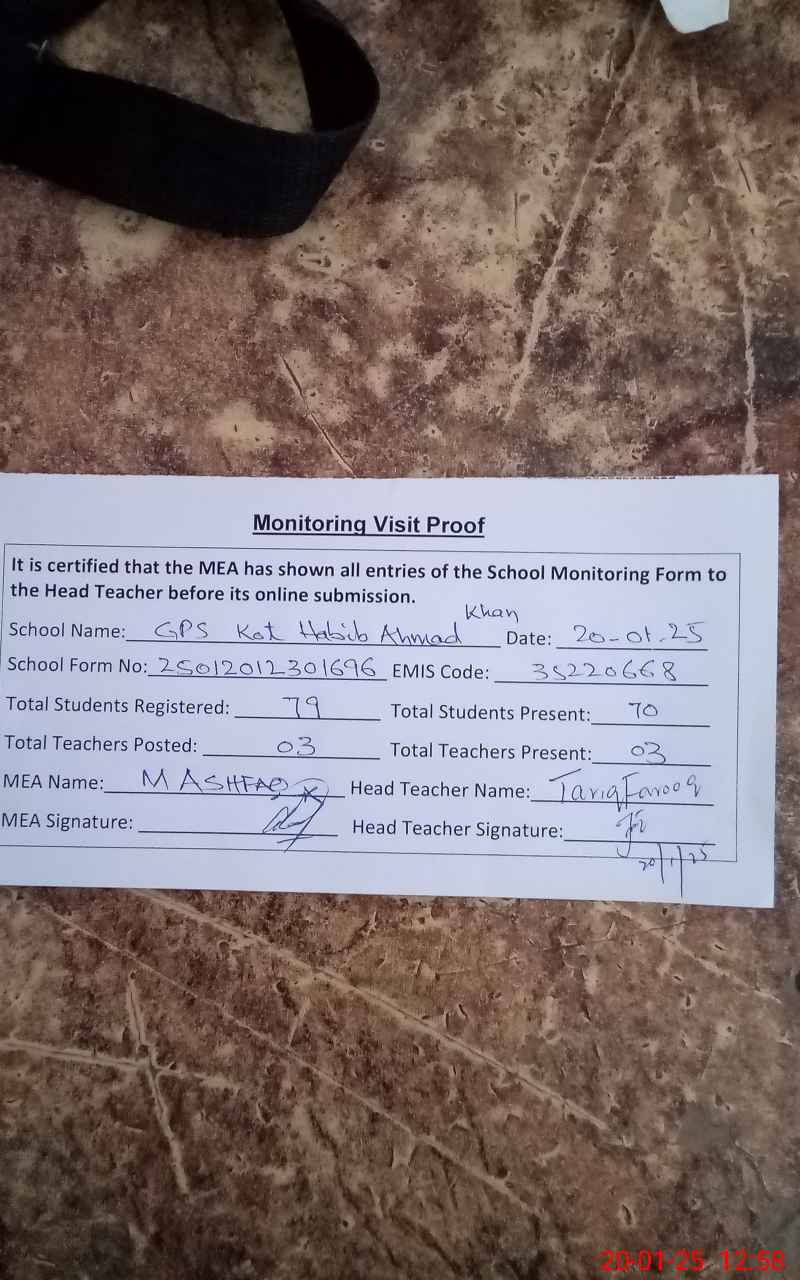 Monitoring Visit Proof
It is certified that the MEA has shown all entries of the School Monitoring Form to
the Head Teacher before its online submission.
School Name: GPS Kot Habib Ahmad Khan Date: 20-01-25
School Form No: 25012012301696 EMIS Code: 35220668
Total Students Registered: 79 Total Students Present: 70
Total Teachers Posted: 03 Total Teachers Present: 03
MEA Name: M ASHFAQ Head Teacher Name: Tariq Farooq
MEA Signature: Head Teacher Signature:
20/1/25
20-01-25 12:58